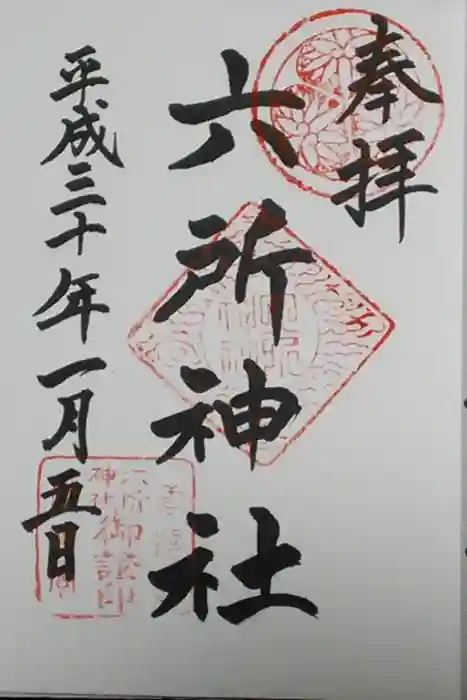 奉拝
六所神社
平成三十年一月五日
六所
神社
御証印